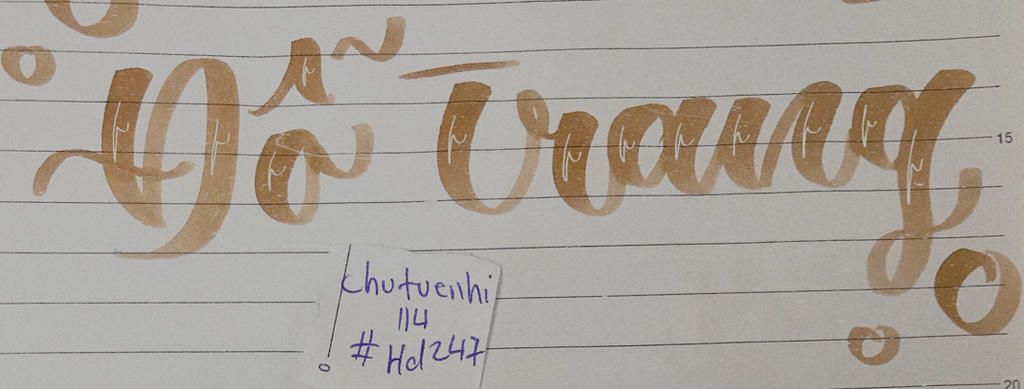 Đỗ Trang
15
chutuenhi
114
#Hd247
20